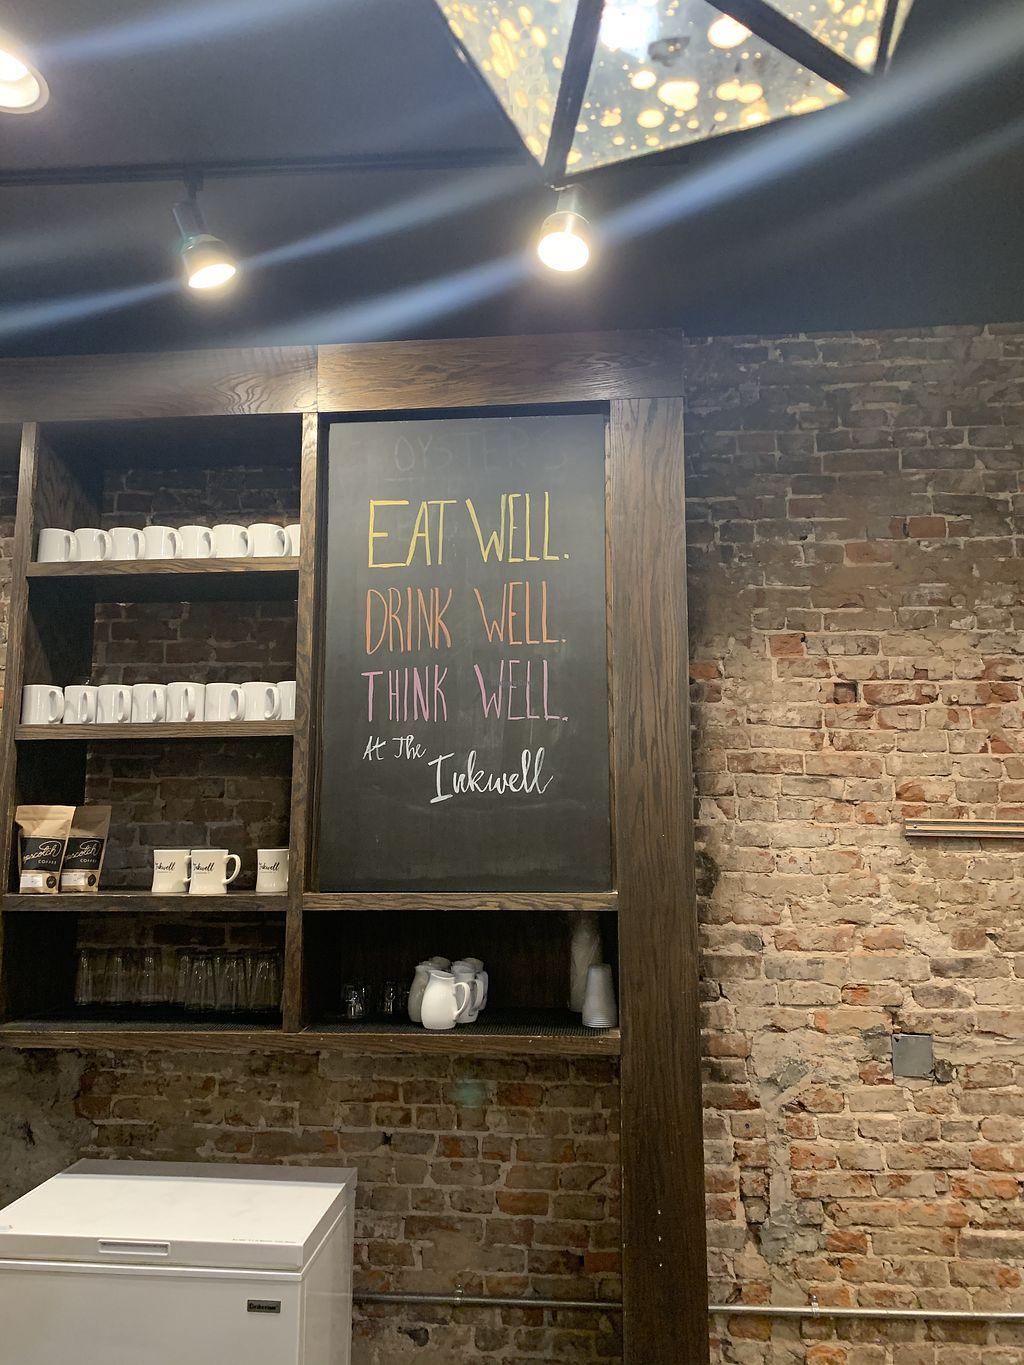 OYSTERS
EAT WELL.
DRINK WELL.
THINK WELL.
At The
Inkwell
COFFEE
COFFEE
Inkwell
Inkwell
Inkwell